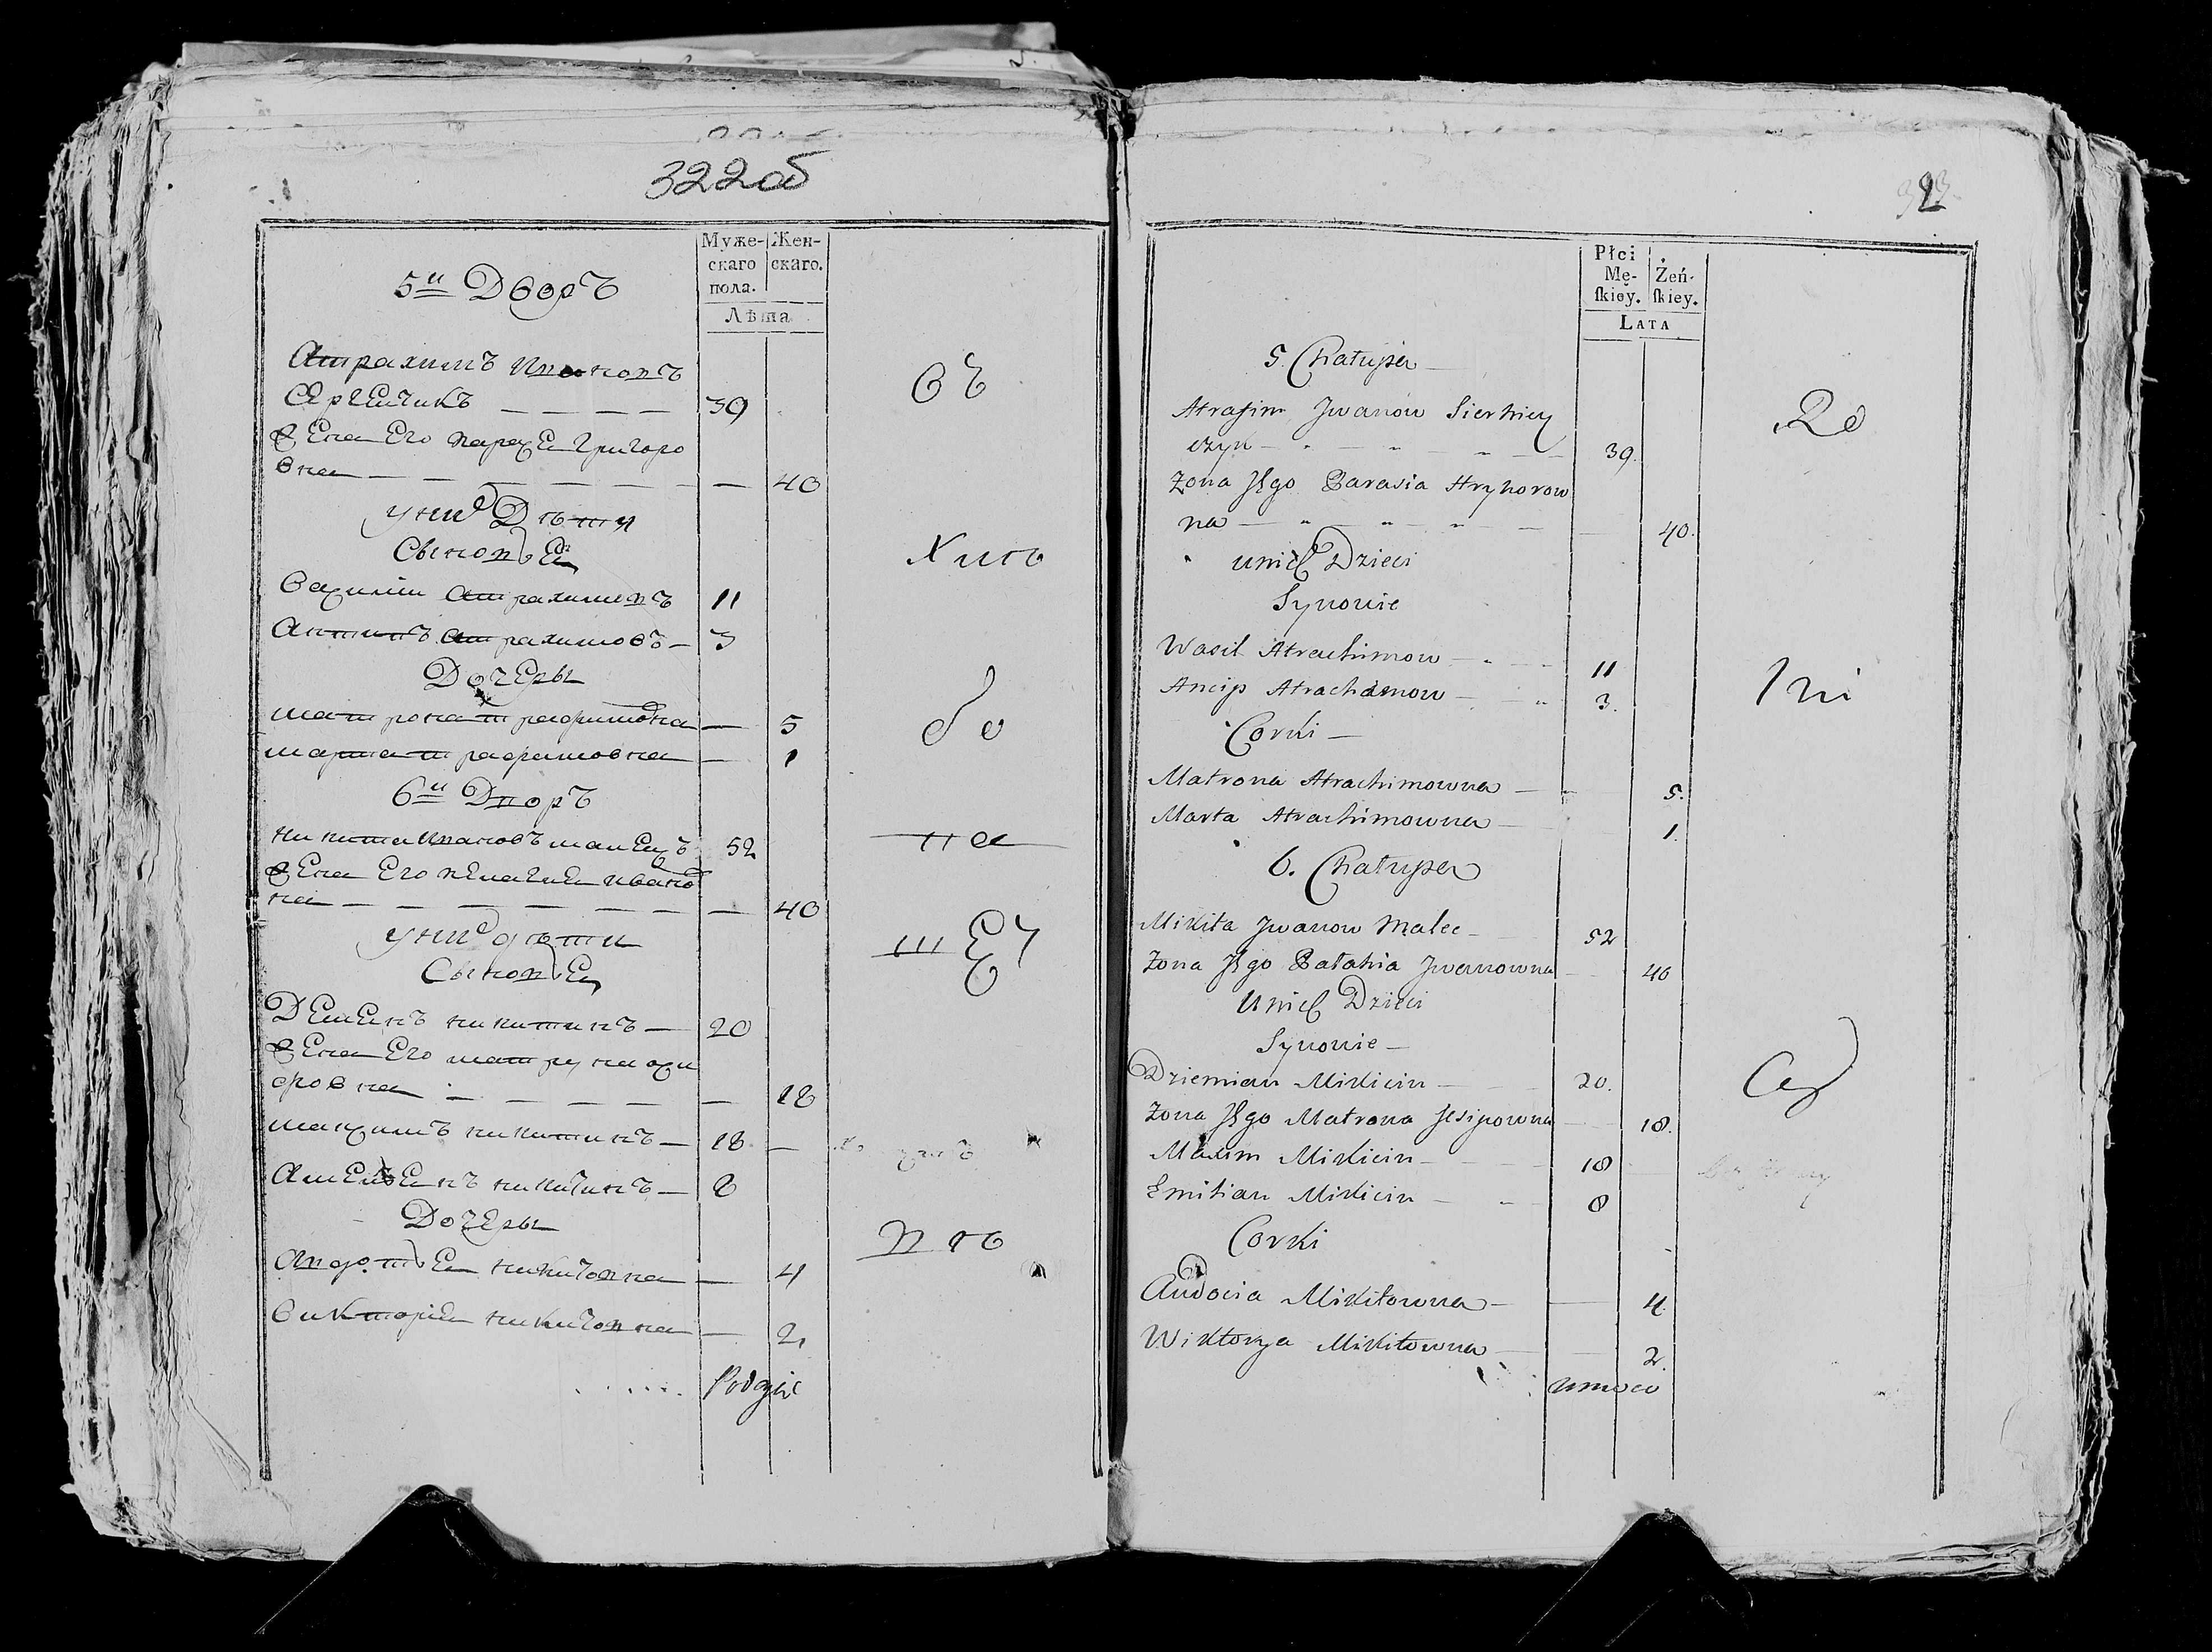 322об
Муже-
скаго
пола.
Жен-
скаго.
Лѣта
5й Дворъ
Атрахимъ Ивановъ
Сергейчикъ — — — — 39
Жена Его параҳея Григоро
вна — — — — — — — 40
у них Дѣти
Сыновья
Василій Атрахимовъ 11
Антипъ Атрахимовъ — 3
Дочеры
матрона трафимовна — 5
марта трафимовна — 1
6й Дворъ
никита Ивановъ малецъ 52
Жена Его пелагия Ивано
вна — — — — — — — 40
у них дѣти
Сыновья
Демьянъ никитинъ — 20
Жена Его матруна оси
повна — — — — — 18
максимъ никитинъ — 18 —
Амельянъ никитинъ — 8
Дочеры
Авдотья никитовна — 4
викторія никитовна — 2
въ
Хило
бо
на
шей
Podgię
323
Płci
Mę-
ſkiey.
Żeń-
ſkiey.
LATA
5. Chałupa
Atrafim Jwanow Sierhiey
czyk — — — 39.
Żona Jego Parasia Hryhorow
na — — — — 40.
u nich Dzieci
Synowie
Wasil Atrachimow — 11
Ancip Atrachimow — 3.
Corki —
Matrona Atrachimowna — 5.
Marta Atrachimowna — 1.
6. Chałupa
Mikita Jwanow Malec — 52
Żona Jego Pałahia Jwanowna — 40
U nich Dzieci
Synowie —
Dziemian Mikicin — 20.
Żona Jego Matrona Jesipowna — 18.
Maxim Mikicin — 18
Emilian Mikicin — 8
Corki
Audocia Mikitowna — 4
Wiktorya Mikitowna — 2.